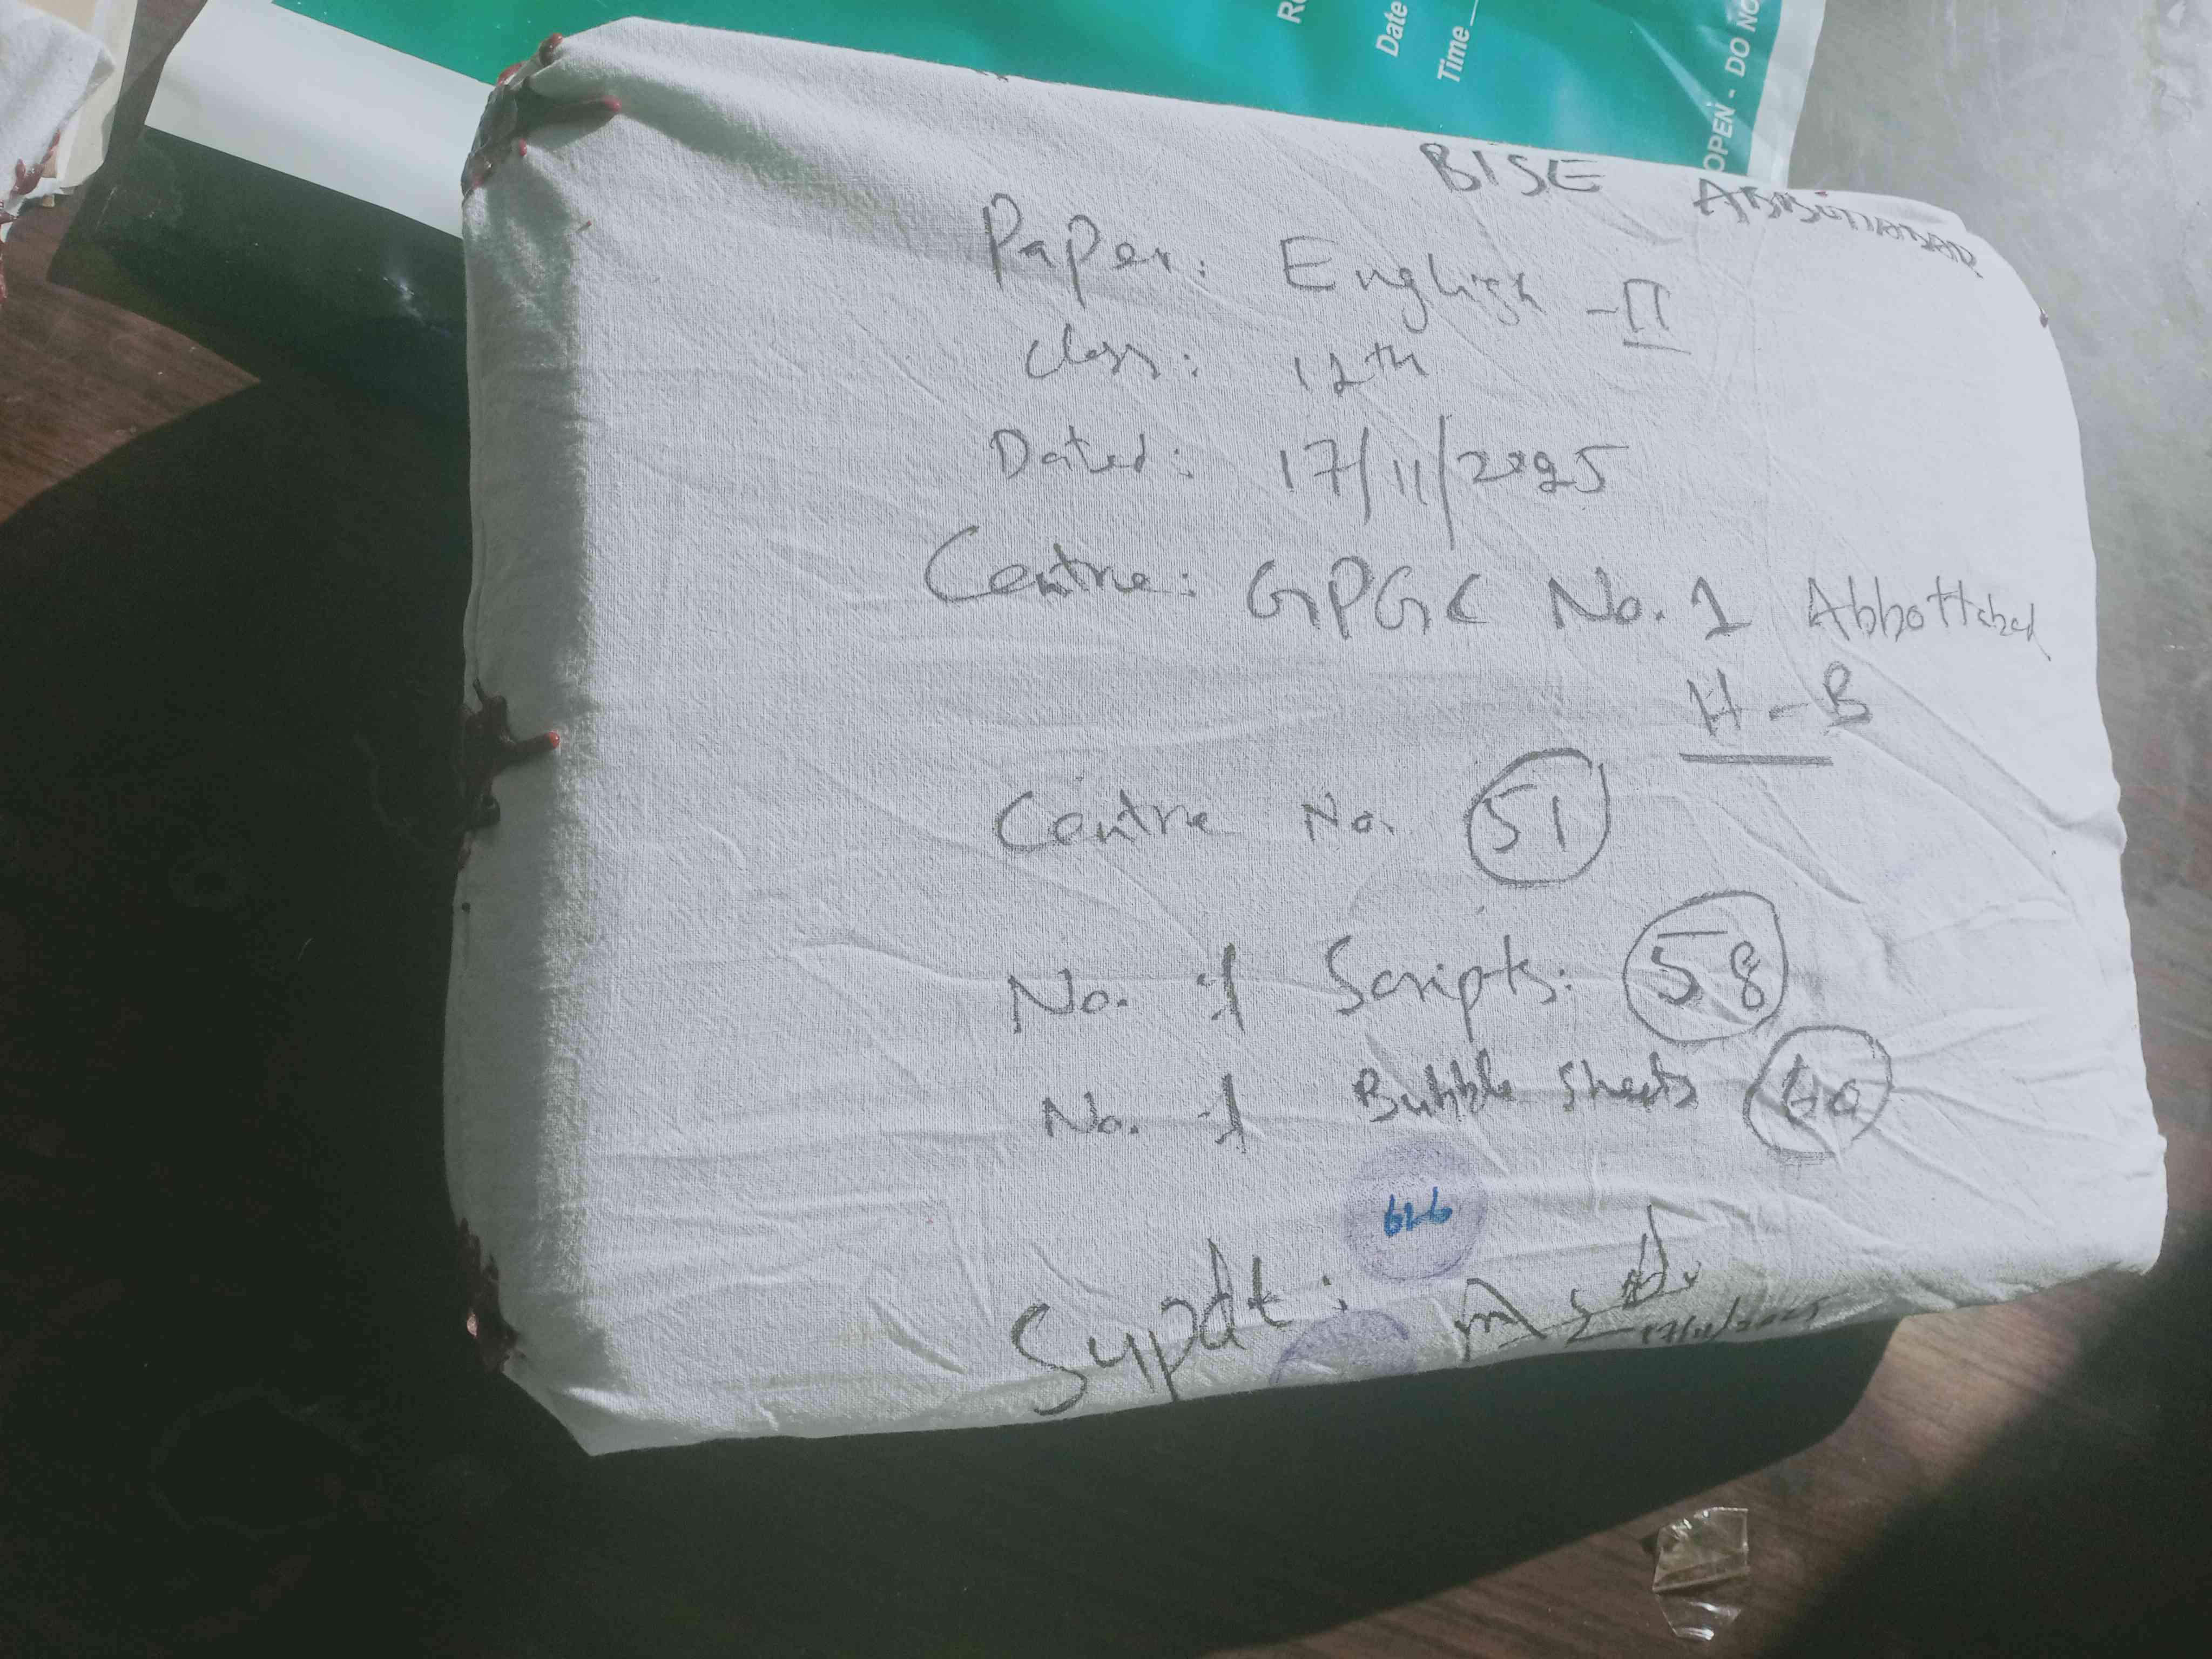 Date
Time
OPEN - DO NO
BISE ABBOTTABAD
Paper: English - II
Class: 12th
Dated: 17/11/2025
Centre: GPGC No. 1 Abbottabad
H-B
Centre No. 51
No. of Scripts: 58
No. of Bubble Sheets 60
Supdt:
17/11/2025